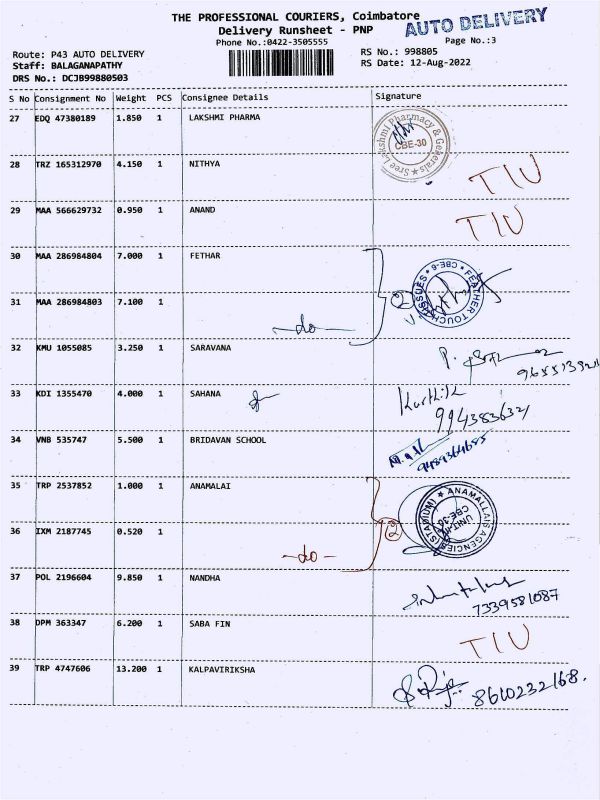 THE PROFESSIONAL COURIERS, Coimbatore
AUTO DELIVERY
Delivery Runsheet - PNP
Phone No.:0422-3505555
Page No.:3
Route: P43 AUTO DELIVERY
RS No.: 998805
Staff: BALAGANAPATHY
RS Date: 12-Aug-2022
DRS No.: DCJB99880503
S No Consignment No Weight PCS Consignee Details Signature
27 EDQ 47380189 1.850 1 LAKSHMI PHARMA
Sree Lakshmi Pharmacy & Generals
CBE-30
28 TRZ 165312970 4.150 1 NITHYA TIU
29 MAA 566629732 0.950 1 ANAND TIU
30 MAA 286984804 7.000 1 FETHAR
FEATHER TOUCH TISSUES CBE-6
31 MAA 286984803 7.100 1
-do- 2
32 KMU 1055085 3.250 1 SARAVANA
33 KDI 1355470 4.000 1 SAHANA Karthik
9943836321
34 VNB 535747 5.500 1 BRIDAVAN SCHOOL
9489364685
35 TRP 2537852 1.000 1 ANAMALAI
ANAMALLAIS AGENCIES (STADIUM)
UNIT-III
CBE-30
36 IXM 2187745 0.520 1
-do- 2
37 POL 2196604 9.850 1 NANDHA
7339581087
38 DPM 363347 6.200 1 SABA FIN TIU
39 TRP 4747606 13.200 1 KALPAVIRIKSHA
8610232168.